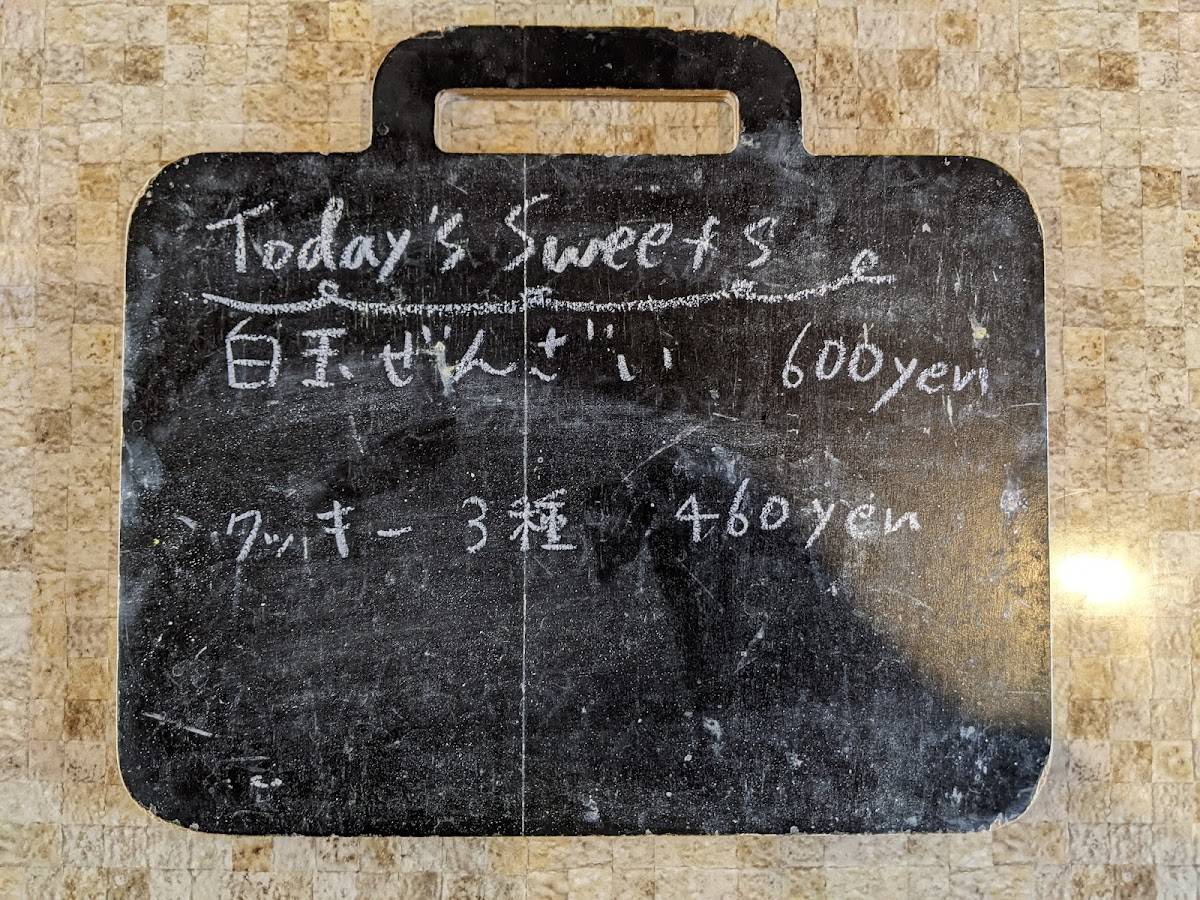 Today's Sweets
白玉ぜんざい 600yen
クッキー 3種 460yen